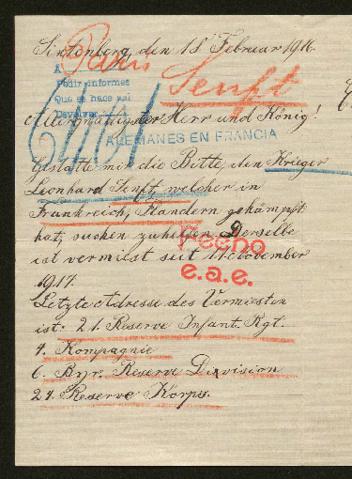 Sintenberg, den 18 Februar 1918.
Paris
A
Pedir informes
Que se hace asi
Devolver
Senft
Allergnädigster Herr und König!
ALEMANES EN FRANCIA
Gestatte mir die Bitte, den Krieger
Leonhard Senft welcher in
Frankreich, Flandern gekämpft
hat, suchen zu helfen Derselbe
ist vermisst seit 11 November
1917.
Fecho
e.a.e.
Letzte Adresse des Vermissten
ist: 21. Reserve Infant. Rgt.
4. Kompagnie
6. Byr. Reserve Division
24. Reserve Korps.